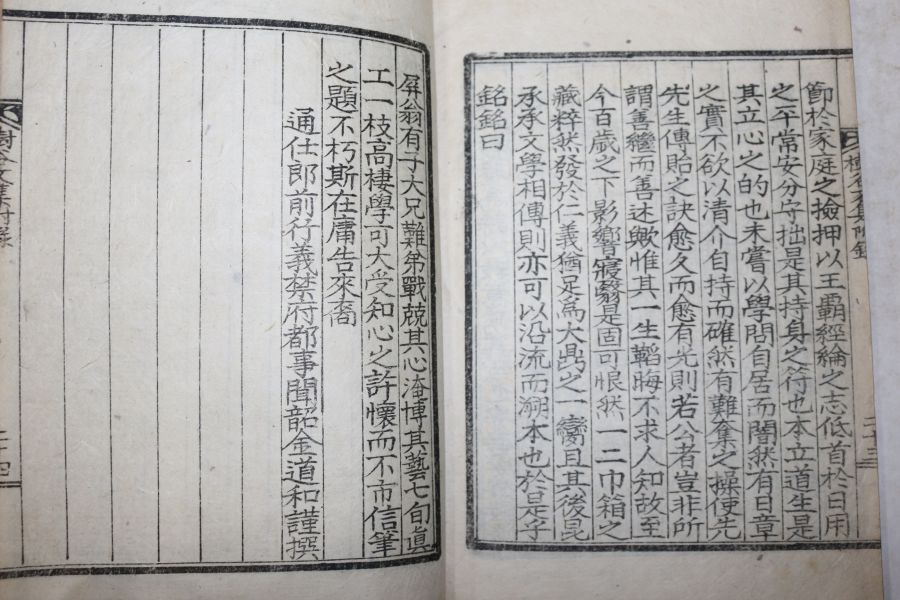 節於家庭之撿押以王霸經綸之志低首於日用
之平常安分守拙是其持身之符也本立道生是
其立心之的也未嘗以學問自居而闇然有日章
之實不欲以清介自持而確然有難奪之操使先
先生傳貽之訣愈久而愈有光則若公者豈非所
謂善繼而善述歟惟其一生韜晦不求人知故至
今百歲之下影響寢翳是固可恨然一二巾箱之
藏粹然發於仁義猶足爲大鼎之一臠且其後昆
承承文學相傳則亦可以沿流而溯本也於是乎
銘銘曰
屏翁有子大兄難弟戰兢其心淹博其藝七旬眞
工一枝高棲學可大受知心之許懷而不市信筆
之題不朽斯在庸告來裔
通仕郞前行義禁府都事聞韶金道和謹撰
文集附錄
二十四